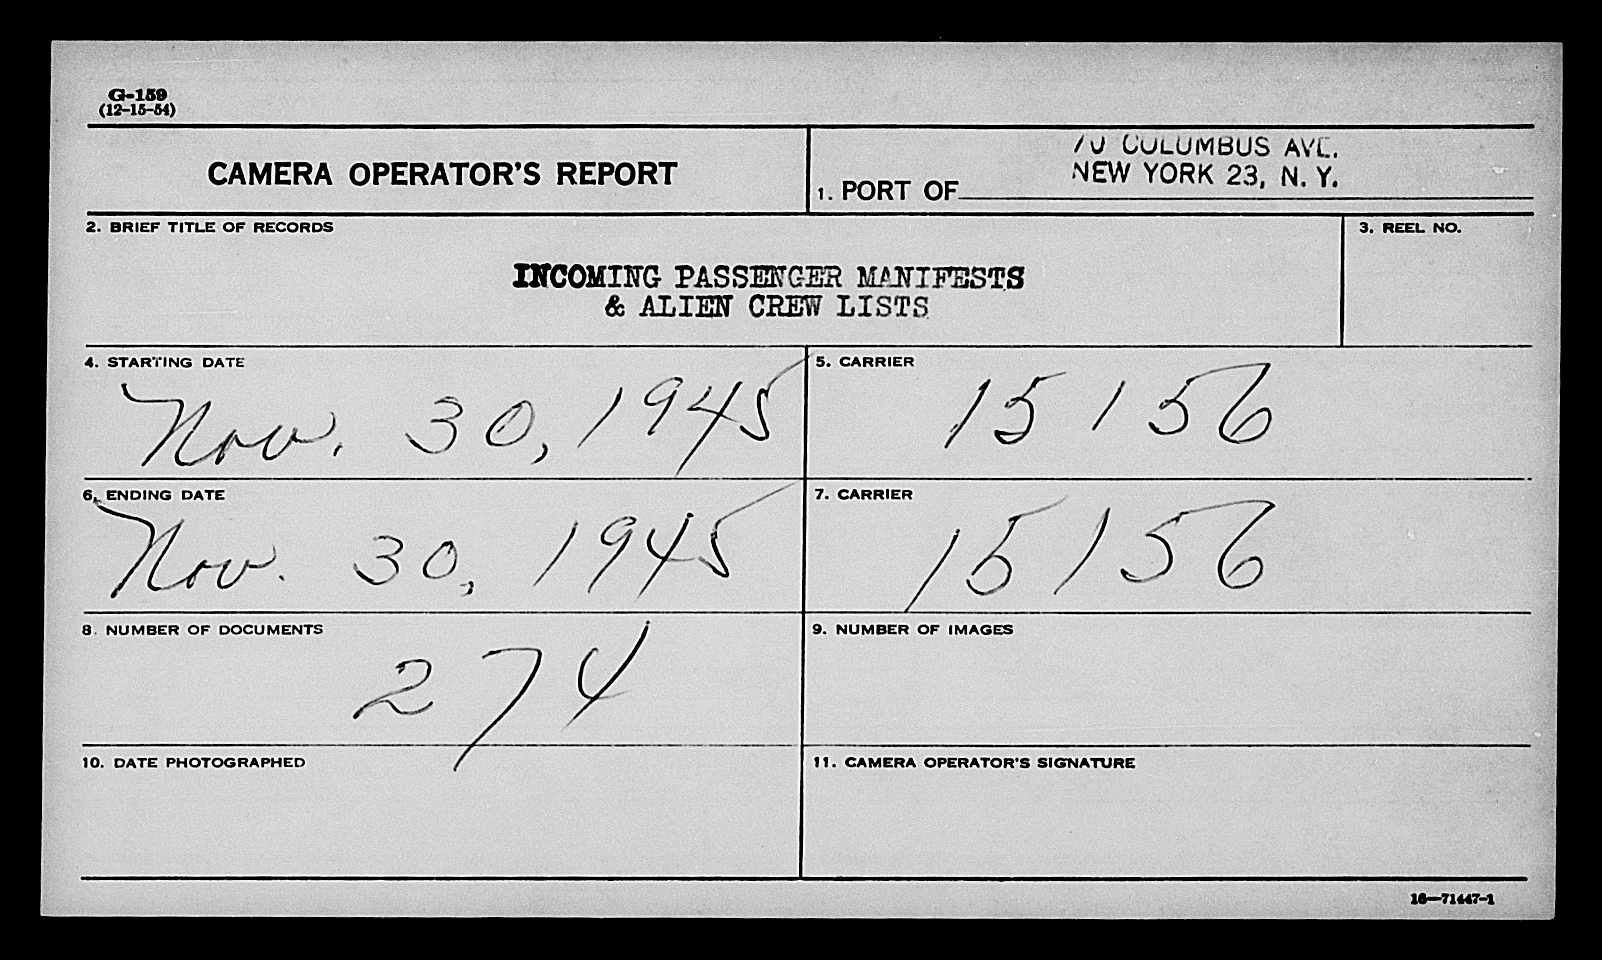 G-159
(12-15-54)
CAMERA OPERATOR'S REPORT
70 COLUMBUS AVE.
NEW YORK 23, N. Y.
1. PORT OF
2. BRIEF TITLE OF RECORDS
3. REEL NO.
INCOMING PASSENGER MANIFESTS
& ALIEN CREW LISTS
4. STARTING DATE
Nov. 30, 1945
5. CARRIER
15156
6. ENDING DATE
Nov. 30, 1945
7. CARRIER
15156
8. NUMBER OF DOCUMENTS
274
9. NUMBER OF IMAGES
10. DATE PHOTOGRAPHED
11. CAMERA OPERATOR'S SIGNATURE
16—71447-1